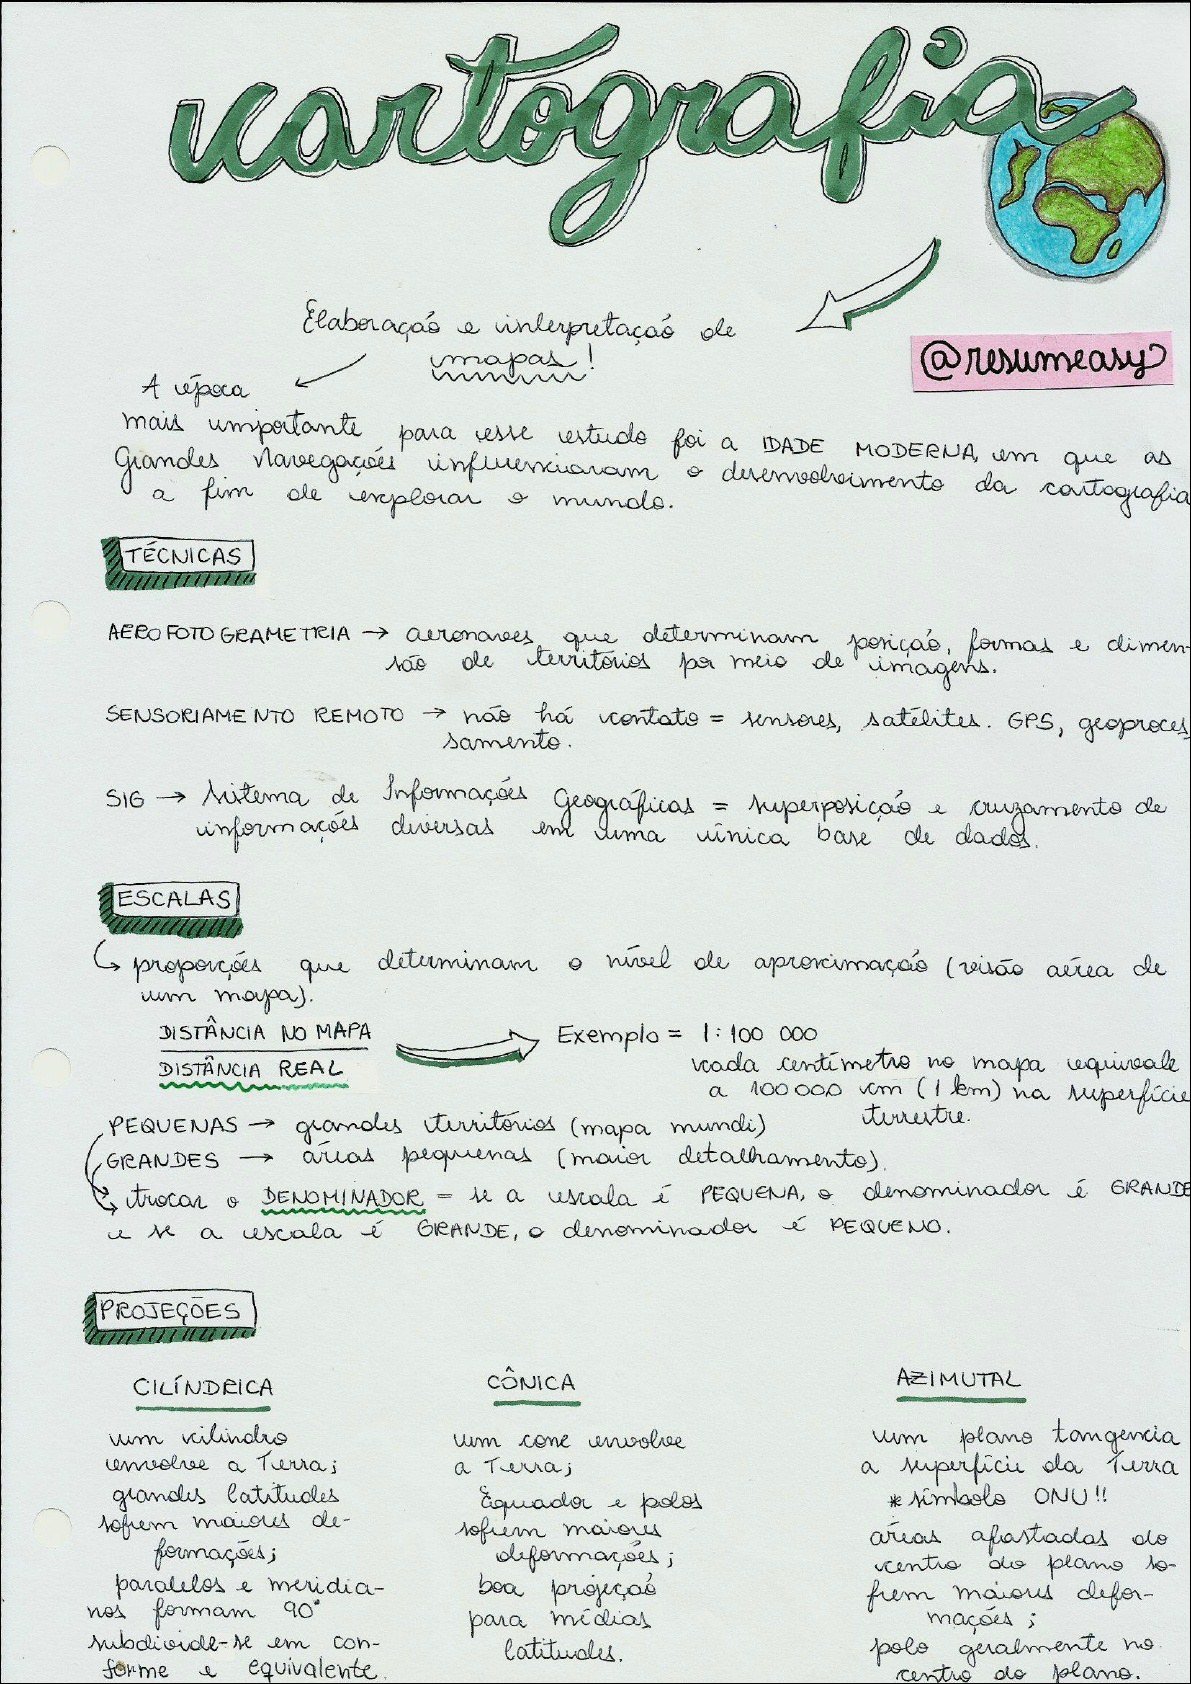 cartografia
Elaboração e interpretação de
mapas!
@resumeasy
A época
mais importante para esse estudo foi a IDADE MODERNA, em que as
Grandes Navegações influenciaram o desenvolvimento da cartografia
a fim de explorar o mundo.
TÉCNICAS
AEROFOTOGRAMETRIA → aeronaves que determinam posição, formas e dimen-
são de territórios por meio de imagens.
SENSORIAMENTO REMOTO → não há contato = sensores, satélites. GPS, geoproces
samento.
SIG → Sistema de Informações Geográficas = superposição e cruzamento de
informações diversas em uma única base de dados.
ESCALAS
↳ proporções que determinam o nível de aproximação (visão aérea de
um mapa).
DISTÂNCIA NO MAPA → Exemplo = 1:100 000
DISTÂNCIA REAL
cada centímetro no mapa equivale
a 100000 cm (1 km) na superfície
terrestre.
PEQUENAS → grandes territórios (mapa mundi)
GRANDES → áreas pequenas (maior detalhamento).
↳ trocar o DENOMINADOR = se a escala é PEQUENA, o denominador é GRANDE
e se a escala é GRANDE, o denominador é PEQUENO.
PROJEÇÕES
CILÍNDRICA
um cilindro
envolve a Terra;
grandes latitudes
sofrem maiores de-
formações;
paralelos e meridia-
nos formam 90°
subdivide-se em con-
forme e equivalente.
CÔNICA
um cone envolve
a Terra;
Equador e polos
sofrem maiores
deformações;
boa projeção
para médias
latitudes.
AZIMUTAL
um plano tangencia
a superfície da Terra
* símbolo ONU!!
áreas afastadas do
centro do plano so-
frem maiores defor-
mações;
polo geralmente no
centro do plano.